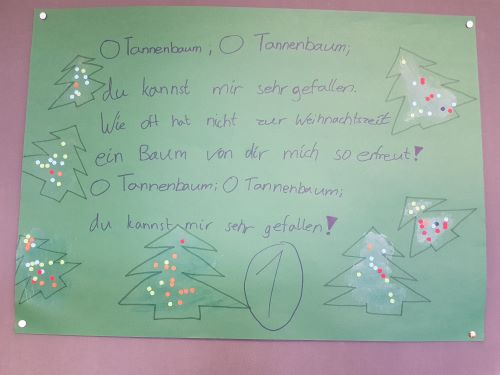 O Tannenbaum; O Tannenbaum;
du kannst mir sehr gefallen.
Wie oft hat nicht zur Weihnachtszeit
ein Baum von dir mich so erfreut!
O Tannenbaum; O Tannenbaum;
du kannst mir sehr gefallen!
1